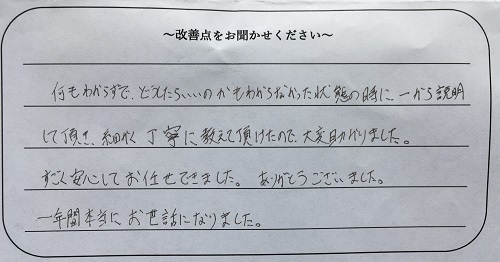 ～改善点をお聞かせください～
何もわからずで、どうしたらいいのかもわからなかった状態の時に、一から説明
して頂き、細かく丁寧に教えて頂けたので、大変助かりました。
すごく安心してお任せできました。 ありがとうございました。
一年間本当にお世話になりました。